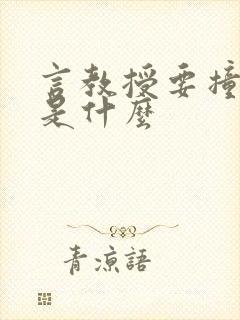 言教授要撞
是什麼
青涼語